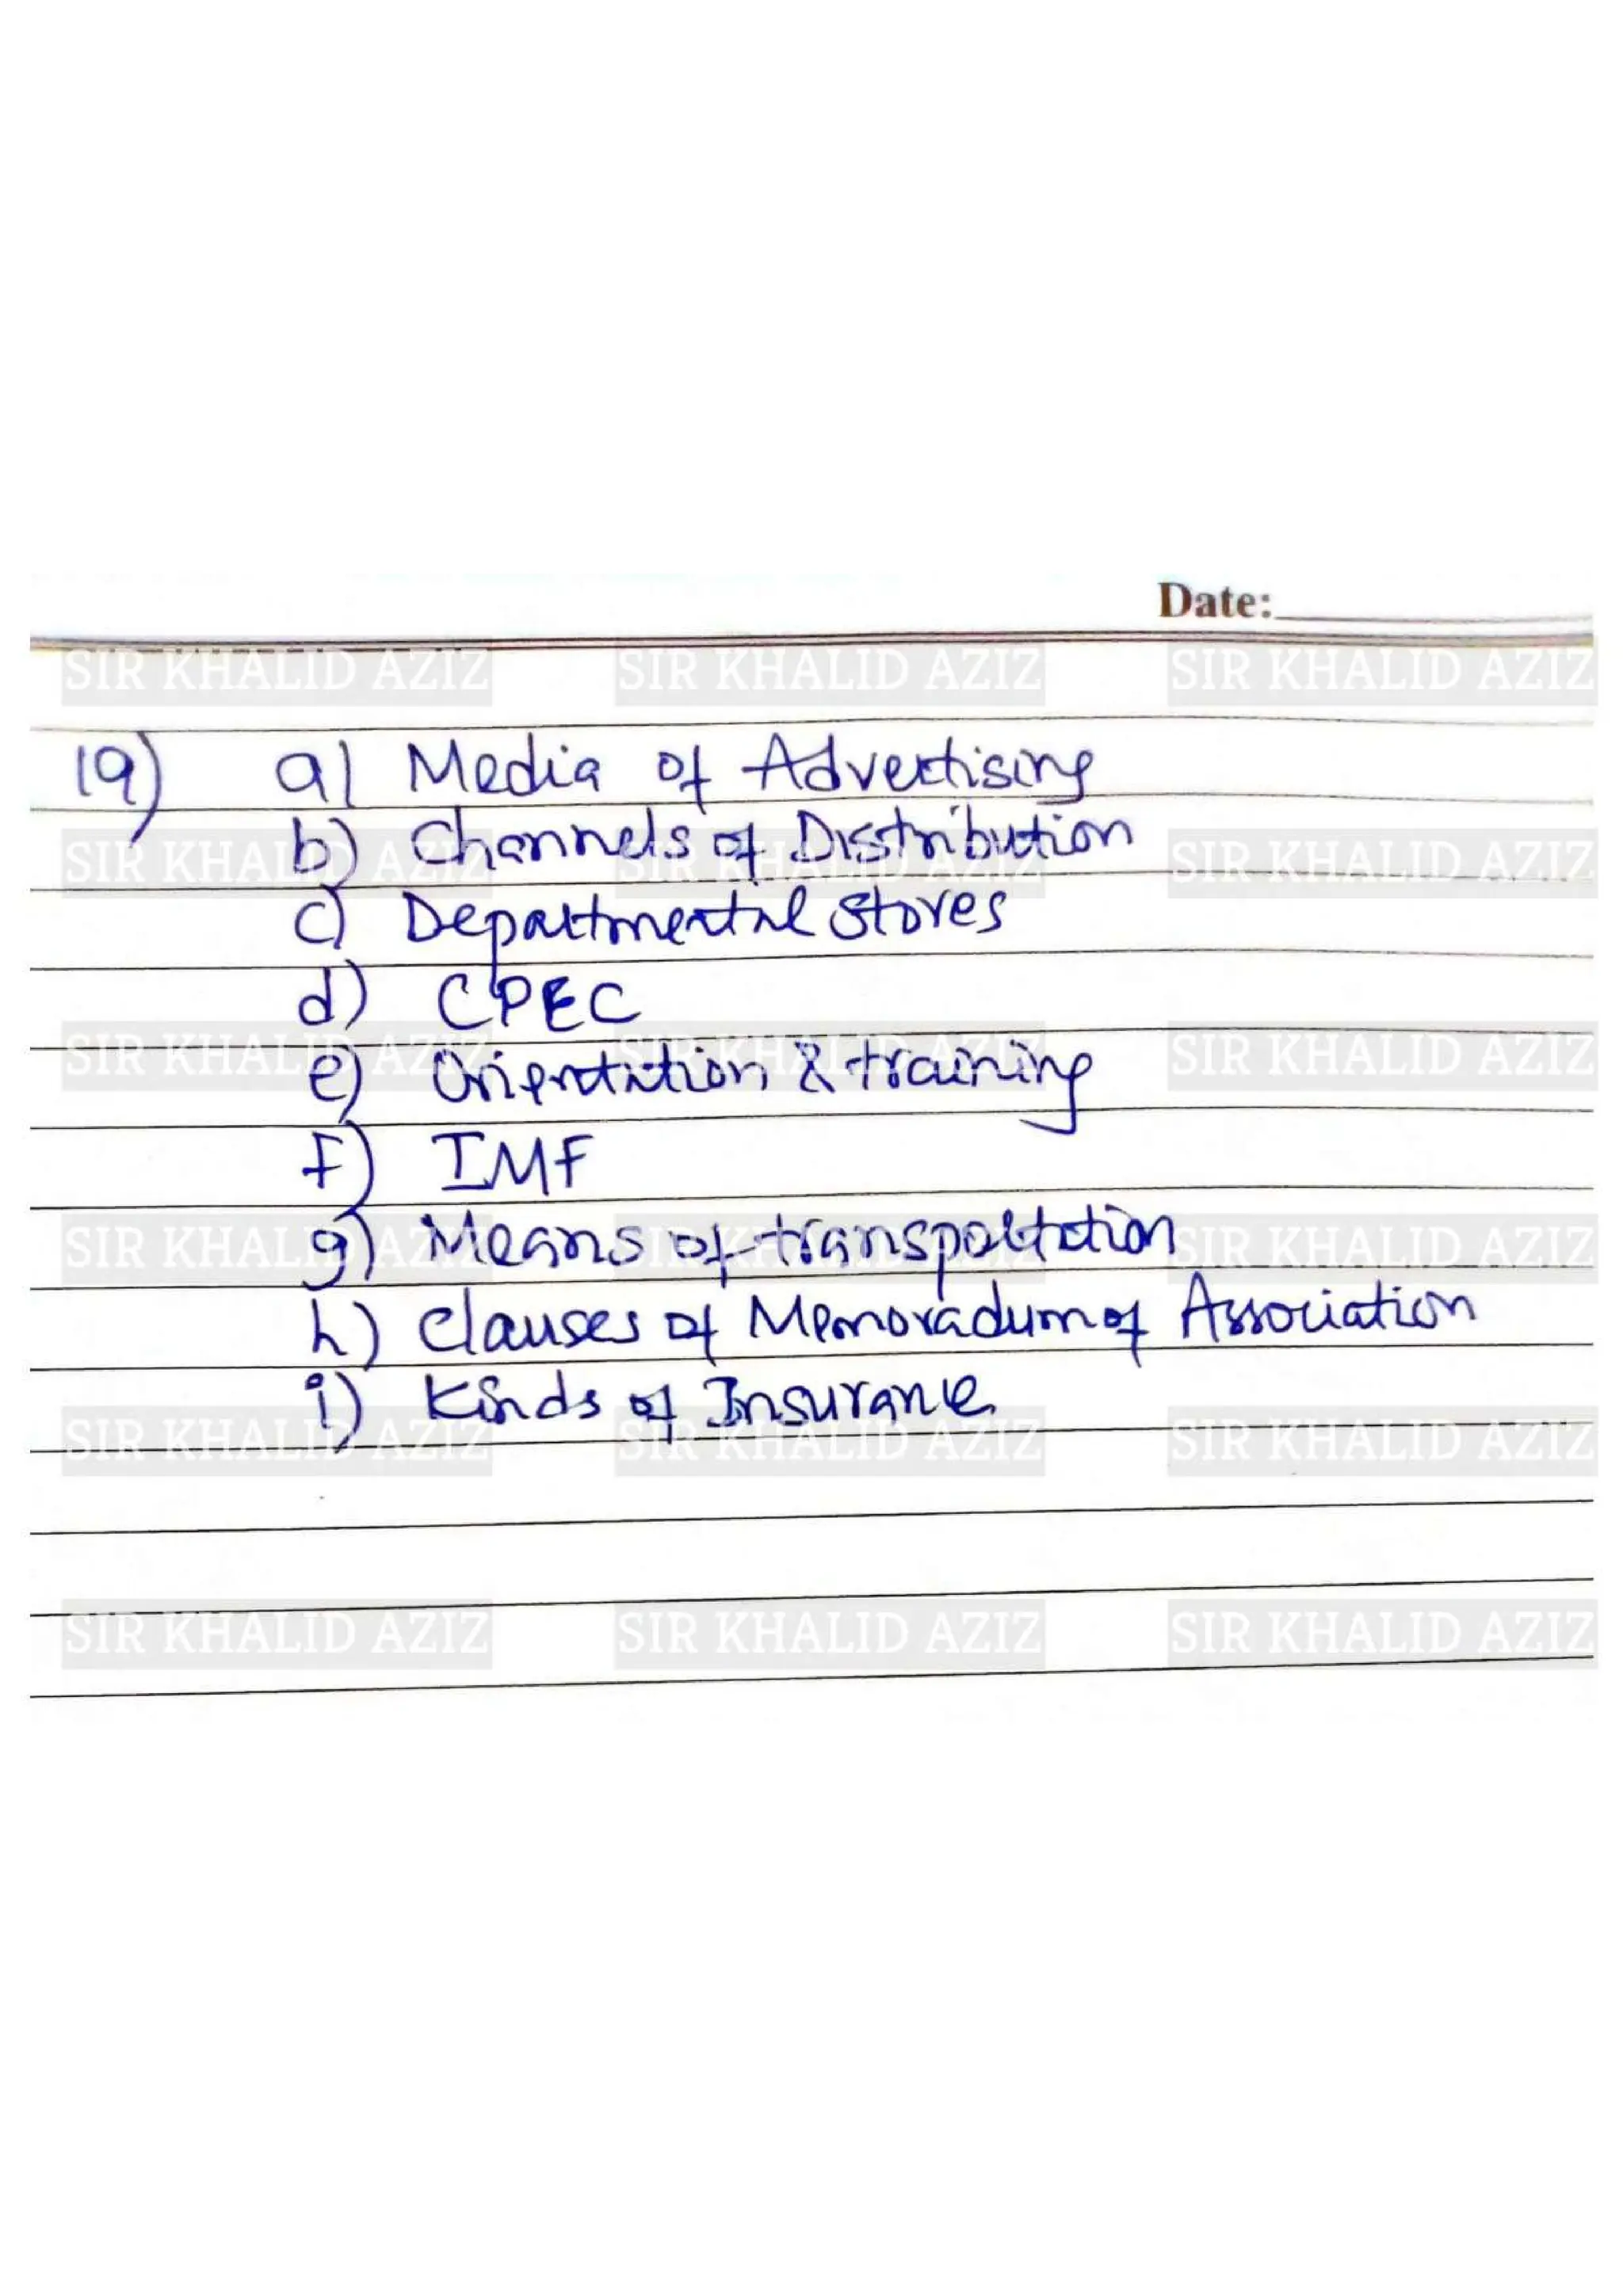 Date:
SIR KHALID AZIZ SIR KHALID AZIZ SIR KHALID AZIZ
19) a) Media of Advertising
b) Channels of Distribution
SIR KHALID AZIZ SIR KHALID AZIZ SIR KHALID AZIZ
c) Departmental Stores
d) CPEC
SIR KHALID AZIZ SIR KHALID AZIZ SIR KHALID AZIZ
e) Orientation & training
f) IMF
SIR KHALID AZIZ SIR KHALID AZIZ SIR KHALID AZIZ
g) Means of transportation
h) Clauses of Memoradum of Association
i) Kinds of Insurance
SIR KHALID AZIZ SIR KHALID AZIZ SIR KHALID AZIZ
SIR KHALID AZIZ SIR KHALID AZIZ SIR KHALID AZIZ